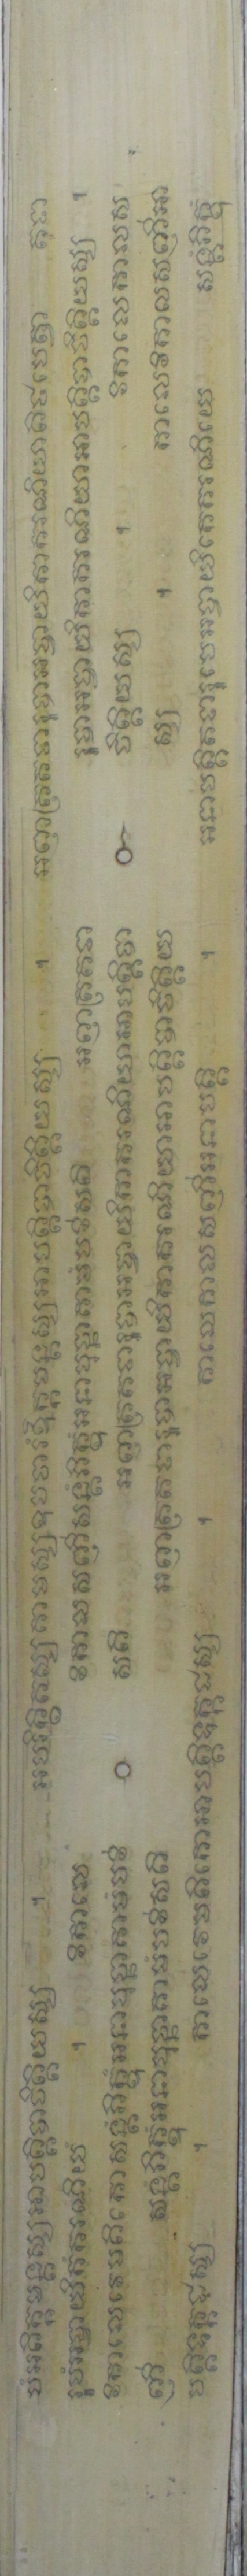 បំអតិក្កមន្តស្សអាបត្តិបាចិត្តិយស្ស ។ អបរិក្ខិត្តស្សគាមស្សឧបចារំឱក្កមន្តស្សអាបត្តិបាចិត្តិយស្ស ។ អញ្ញត្រតថារូបាអច្ចាយិកាករណីយាតិឋបេត្វា តថា
រូបំអច្ចាយិកំករណីយំ ។ វិកាលេ វិកាលសញ្ញីសន្តំភិក្ខុំអនាបុច្ឆាគាមំបវិសតិ អញ្ញត្រតថា រូបាអច្ចាយិកាករណីយាអាបត្តិបាចិត្តិយស្ស ។
វិកាលេវេមតិកោសន្តំភិក្ខុំអនាបុច្ឆាគាមំបវិ សតិ អញ្ញត្រតថារូបាអច្ចាយិកាករណីយាអាបត្តិបា ចិត្តិយស្ស ។ វិកាលេកាលស
ញ្ញី សន្តំភិក្ខុំអនាបុច្ឆាគាមំបវិសតិ អញ្ញត្រតថារូបាអច្ចាយិកាករណីយាអាបត្តិបាចិត្តិយ ស្ស ។ កាលេវិកាលសញ្ញីអា
បត្តិទុក្កដស្ស ។ កាលេវេមតិកោអាបត្តិទុក្កដស្ស ។ កាលេកាលសញ្ញីអនាបត្តិ ។ អនាបត្តិតថារូបេអច្ចាយិកេករណីយេ សន្តំភិក្ខុំ